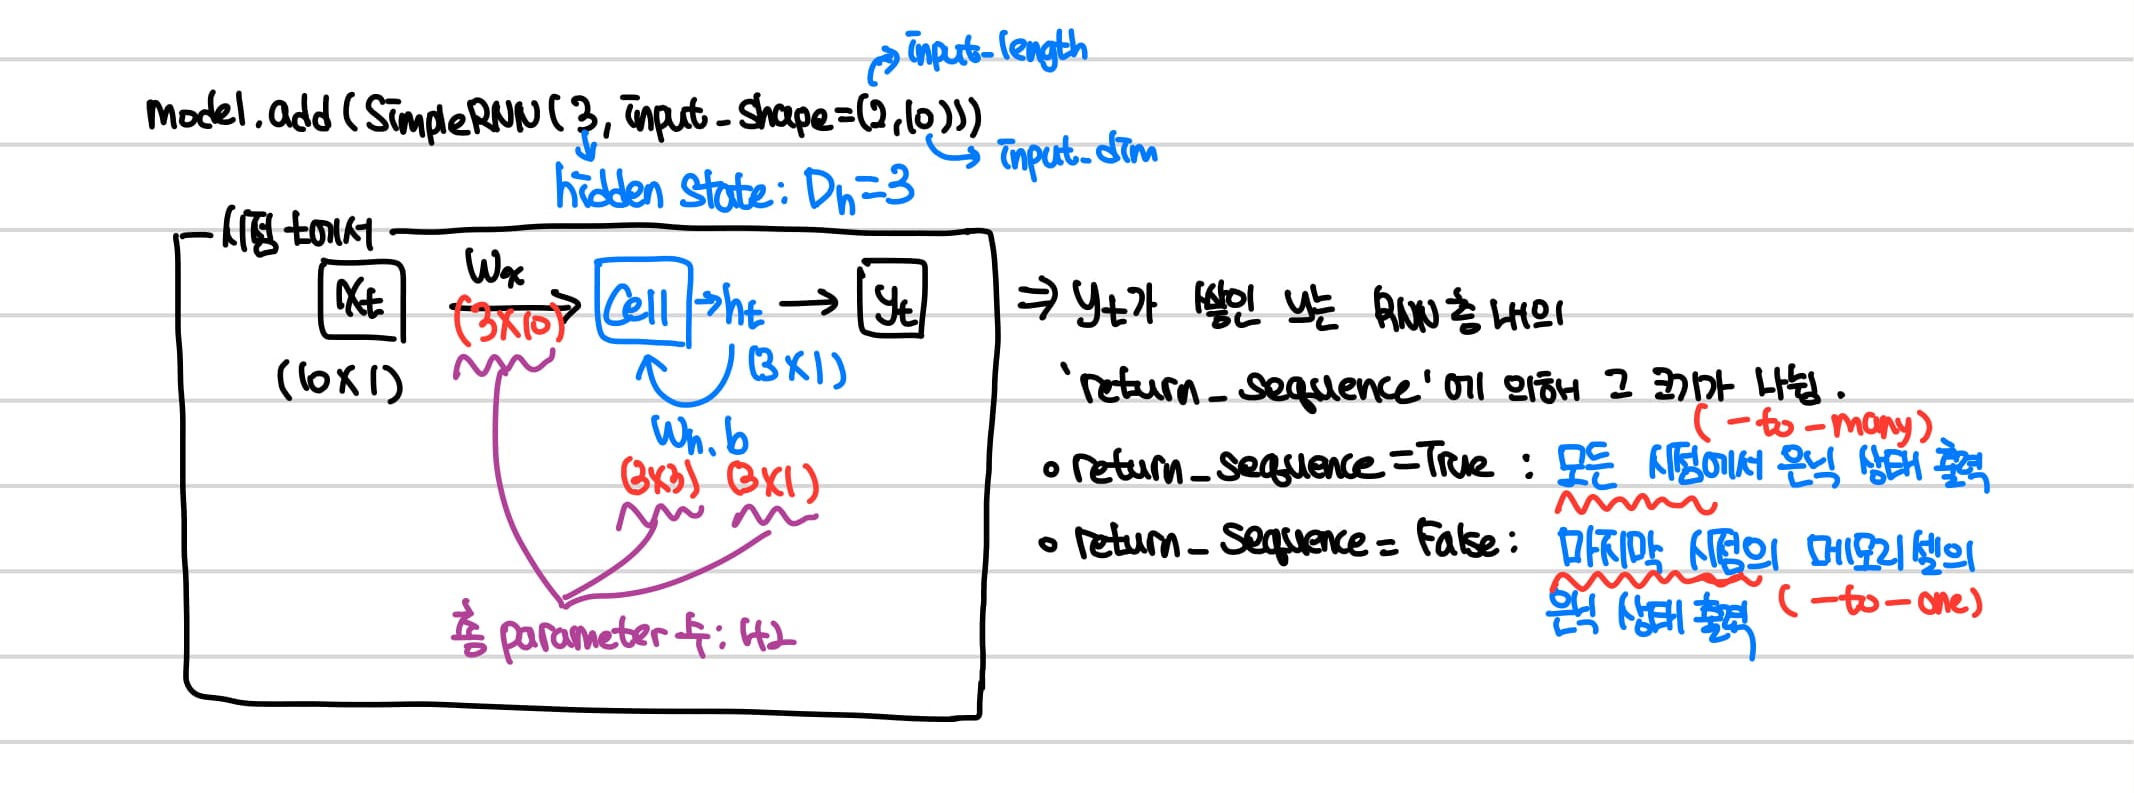 input-length
model.add(SimpleRNN(3, input-shape=(2,10)))
input-dim
hidden state: Dh=3
시점 t에서
Wx
Xt
(3X10)
Cell
ht
yt
(10X1)
(3X1)
Wh, b
(3X3) (3X1)
총 parameter 수: 42
⇒ yt가 쌓인 y는 RNN 층 내의
'return_sequence'에 의해 그 크기가 나뉨.
(-to-many)
return_sequence=True : 모든 시점에서 은닉 상태 출력
return_sequence= False: 마지막 시점의 메모리 셀의
은닉 상태 출력 (-to-one)